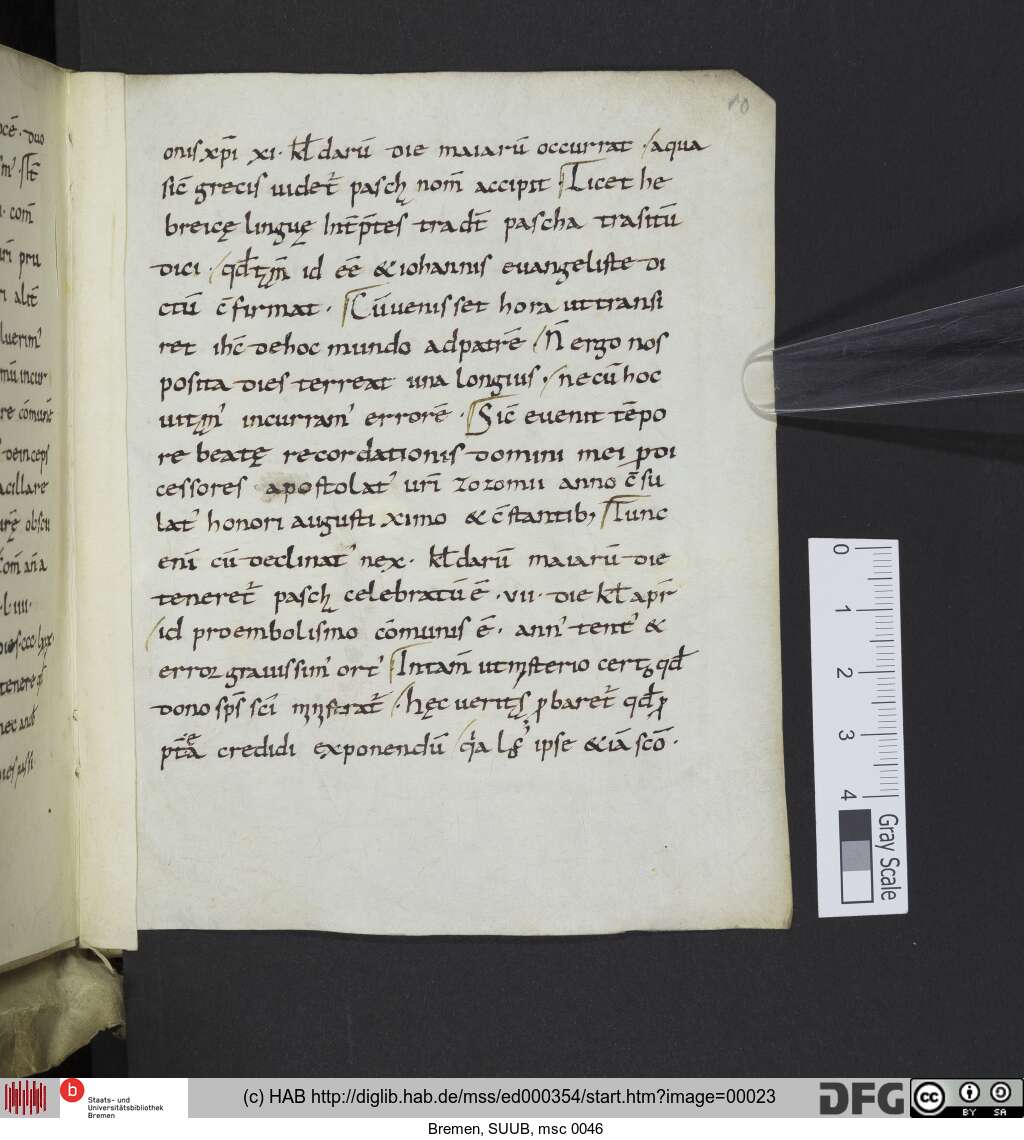 10
onis xp̄i xi · kl̄darū die maiarū occurrat · aqua
sic̄ grecis uidet̄ paschę nom̄ accipit · Licet he
breicę linguę int̄p̄tes tradt̄ pascha trasitū
dici · qd̄ id eē & iohannis euangeliste di
ctū c̄firmat · Cū uenisset hora ut transi
ret ih̄c dehoc mundo ad patrē N̄ ergo nos
posita dies terreat una longius · ne cū hoc
incurram' errorē · Sic̄ euenit tēpo
re beatę recordationis domini mei p̄di
cessores apostolat' uri zozomii anno c̄su
lat' honori augusti ximo & c̄stantib; Tunc
eni cū declinat' nex · kl̄darū maiarū die
teneret̄ paschę celebratū ē · vii · die kl̄ apr̄
id pro embolismo cōmunis ē · ann' tent' &
error grauissim' ort' In tam̄ ut misterio cert; qd̄
dono sp̄s sci · hęc ueritas p̄baret̄ qd̄ p̄
credidi exponendū q'a ipse & iā scō ·
duo
com̄
luerim'
re cōmunē
deinceps
acillare
obscu
· l · iiii ·
tenere qd̄
0
1
2
3
4
Gray Scale
b
Staats- und
Universitätsbibliothek
Bremen
(c) HAB http://diglib.hab.de/mss/ed000354/start.htm?image=00023
DFG
cc
BY SA
Bremen, SUUB, msc 0046